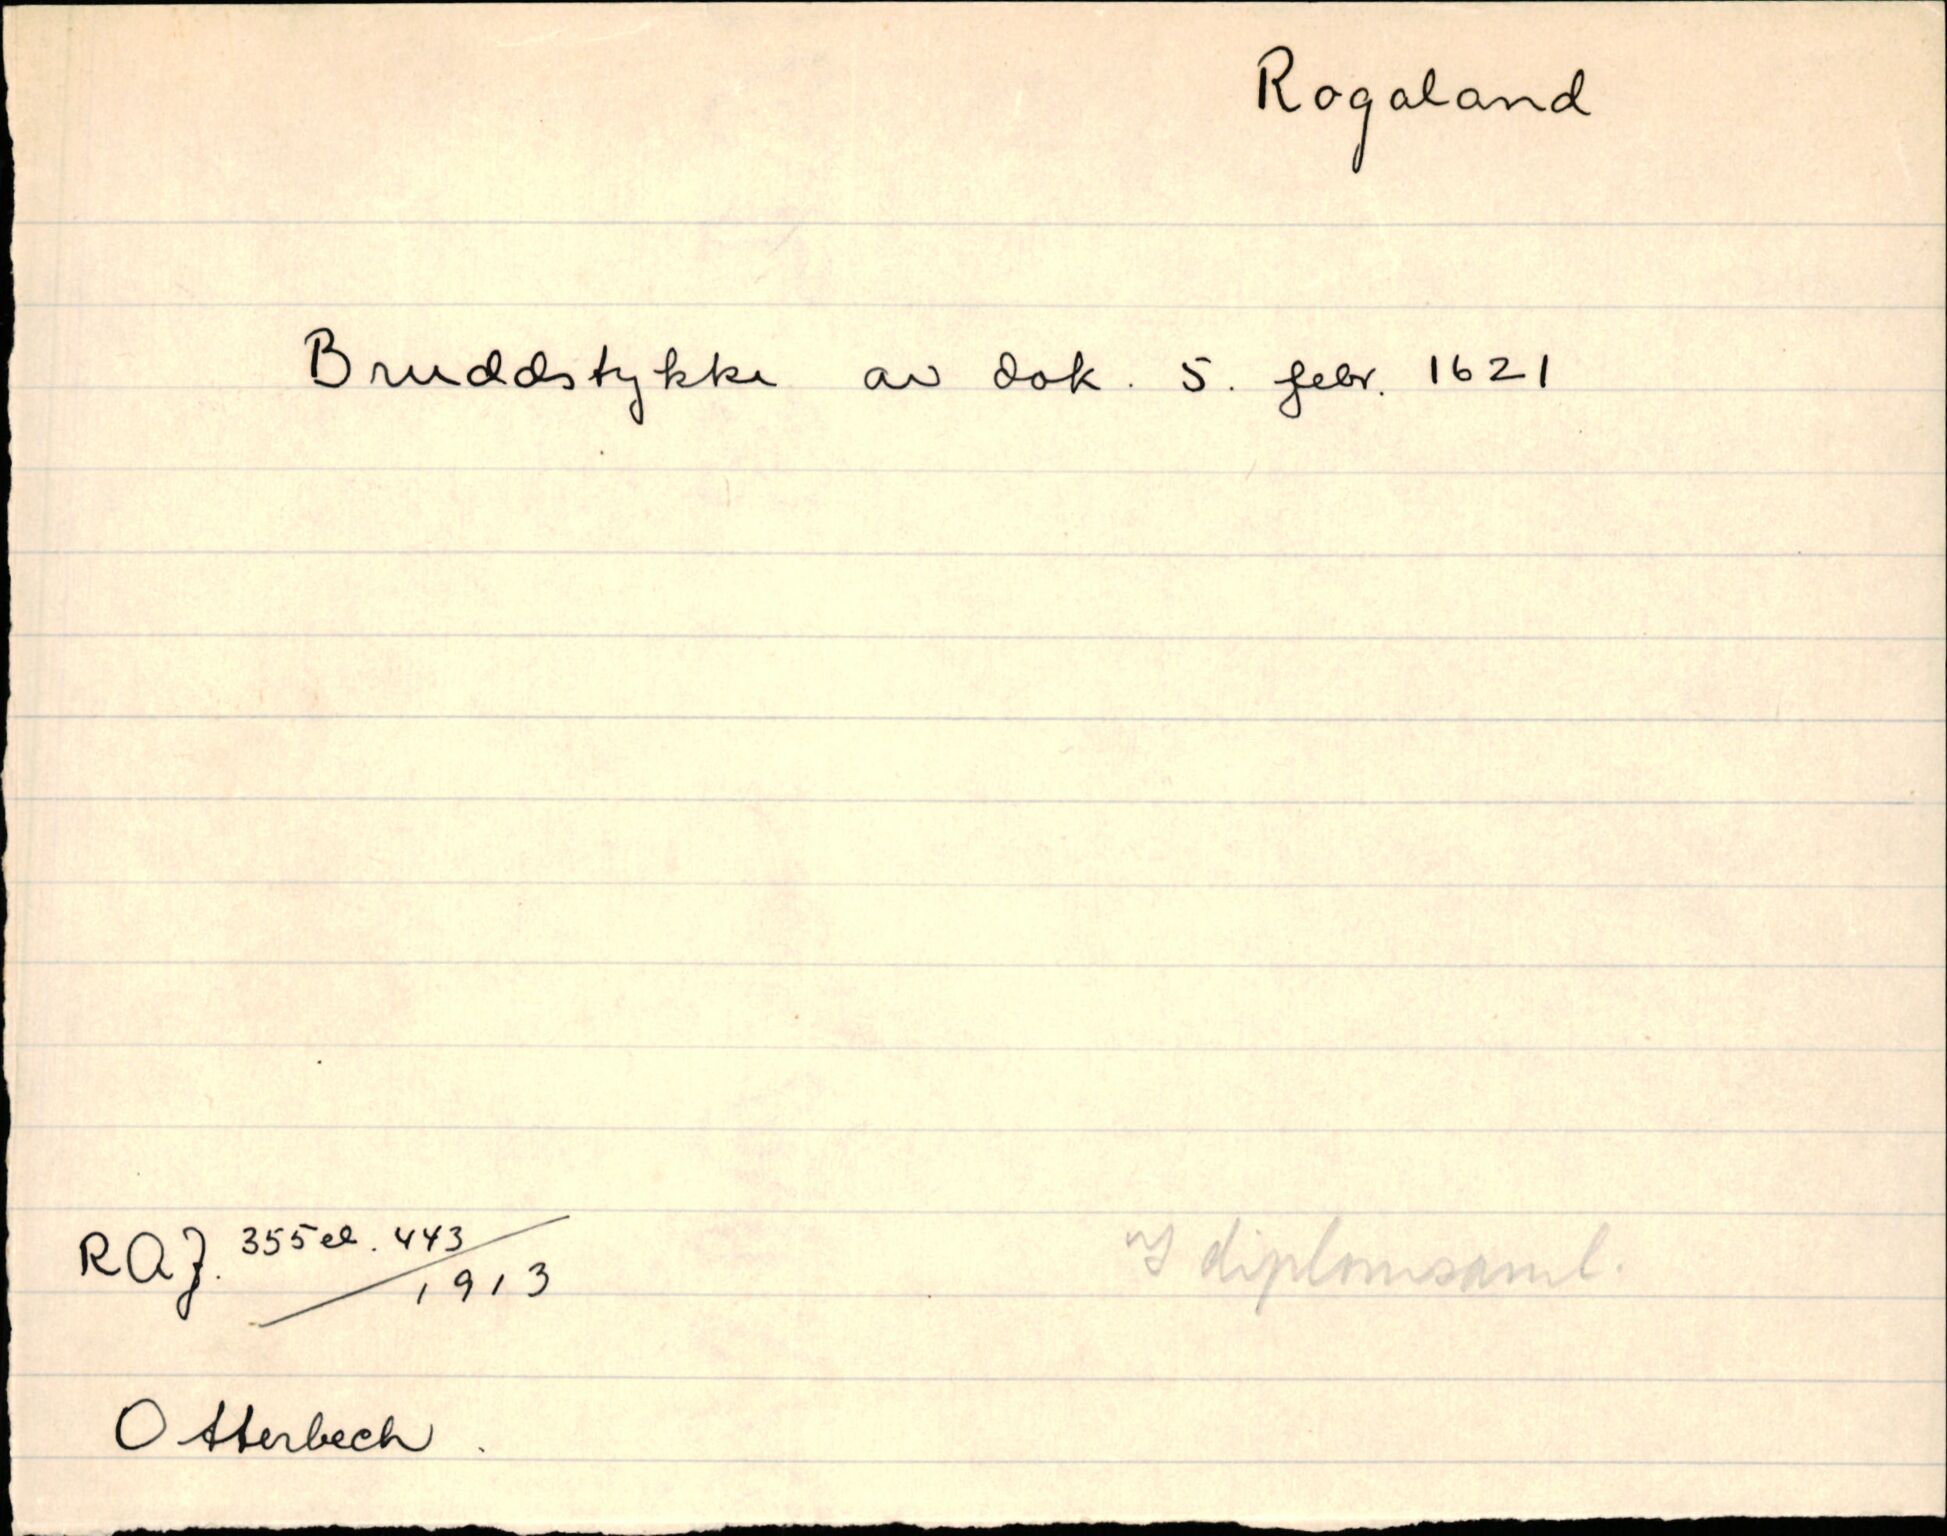 Rogaland
Bruddstykke av dok. 5. febr. 1621
RAJ. 355 el. 443/1913
I diplomsaml.
Otterbech.